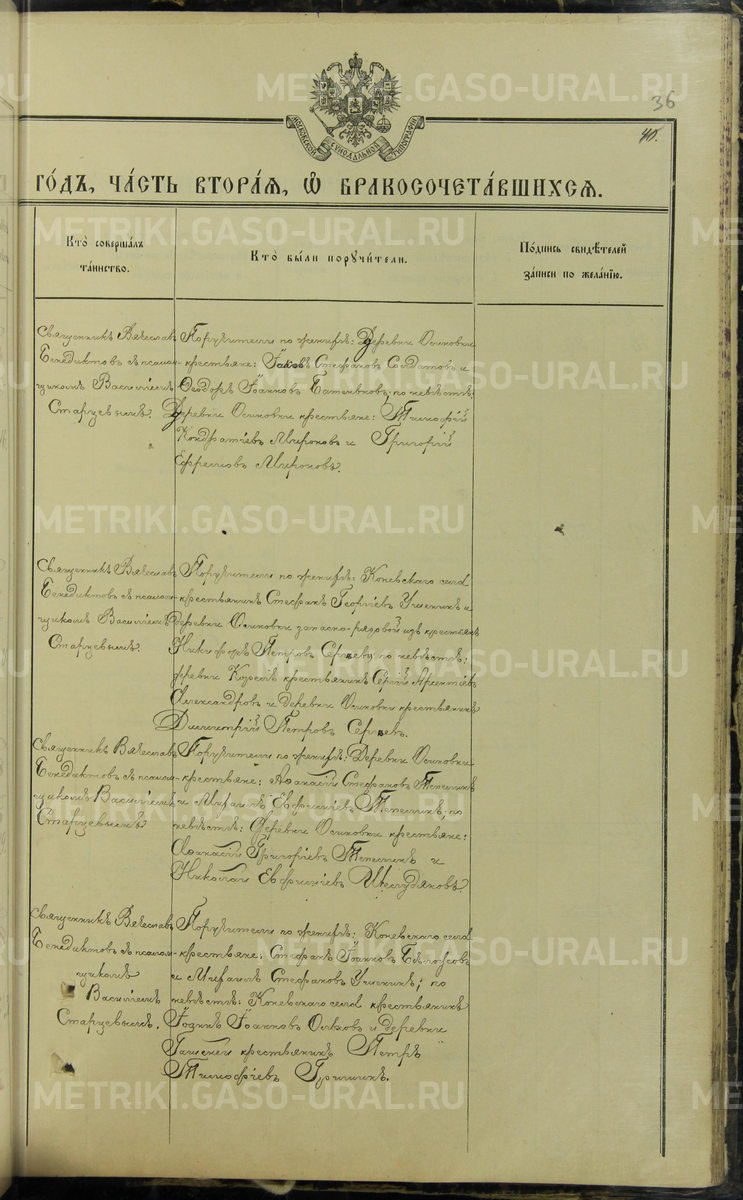 METRIKI.GASO-URAL.RU
36
МОСКОВСКОЙ СѴНОДАЛЬНОЙ ТИПОГРАФІИ
40.
ГО́ДЪ, ЧА́СТЬ ВТОРА́Ѧ, Ѡ҆ БРАКОСОЧЕТА́ВШИХСѦ.
Кто̀ соверша́лъ
та́инство.
Кто̀ бы́ли порꙋчи́тели.
По́дпись свидѣ́телей
за́писи по жела́нїю.
Священникъ Вячеслав
Бенедиктовъ съ псалом-
щикомъ Василіемъ
Старцевымъ.
Поручители по женихѣ: Деревни Осиновки
крестьяне: Іаковъ Стефановъ Солдатовъ и
Ѳеодоръ Іоанновъ по невѣстѣ:
Деревни Осиновки крестьяне: Тимофей
Кондратіевъ Мироновъ и Григорій
Ефремовъ Мироновъ.
Священникъ Вячеслав
Бенедиктовъ съ псалом-
щикомъ Василіемъ
Старцевымъ.
Поручители по женихѣ: Коневскаго села
крестьянинъ Стефанъ Георгіевъ и
деревни Осиновки запасно-рядовой изъ крестьянъ
Никифоръ Петровъ по невѣстѣ:
деревни крестьянинъ Сергій Арсентіевъ
Александровъ и деревни Осиновки крестьянинъ
Димитрій Петровъ
Священникъ Вячеслав
Бенедиктовъ съ псалом-
щикомъ Василіемъ
Старцевымъ
Поручители по женихѣ: Деревни Осиновки
крестьяне: Аѳанасій Стефановъ
и Михаилъ по
невѣстѣ: Деревни Осиновки крестьяне:
Аѳанасій Григоріевъ и
Николай
Священникъ Вячеслав
Бенедиктовъ съ псалом-
щикомъ
Василіемъ
Старцевымъ.
Поручители по женихѣ: Коневскаго села
крестьяне: Стефанъ Іоанновъ Бѣлоусовъ
и Михаилъ Стефановъ по
невѣстѣ: Коневскаго села крестьянинъ
Іоаннъ Іоанновъ и деревни
крестьянинъ Петръ
Тимофѣевъ